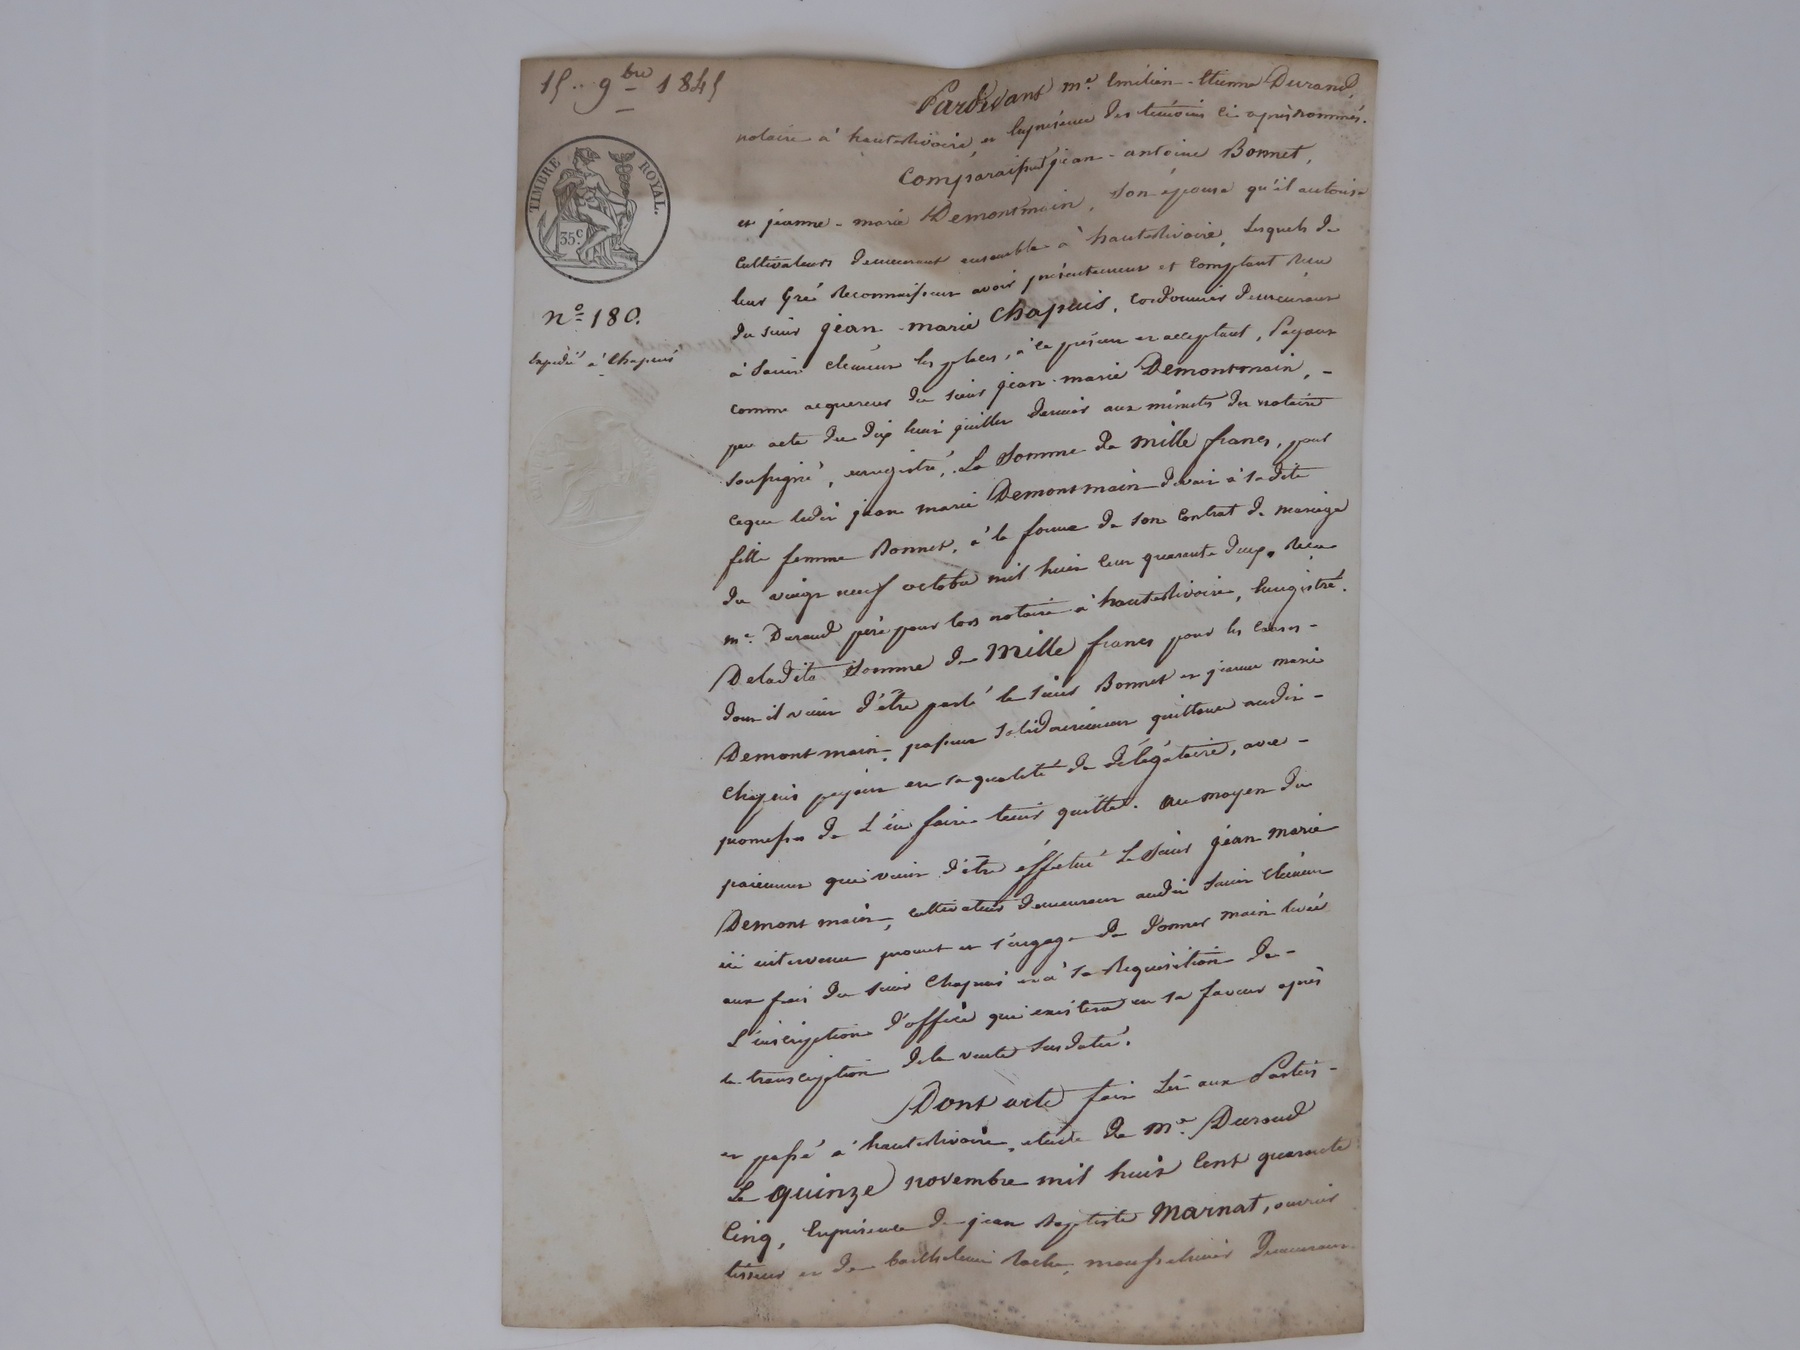 15. 9bre 1845
TIMBRE ROYAL.
35c
No 180.
Expédié à Chapuis
Pardevant me. Emilien-Etienne Durand,
notaire à hauterivoire, en la présence des témoins ci après nommés.
Comparaissent jean-antoine Bonnet,
et jeanne-marie Demontmain, son épouse qu'il autorise
cultivateurs demeurant ensemble à hauterivoire, Lesquels de
leur Gré Reconnaissent avoir présentement et Comptant Reçu
du sieur jean-marie Chapuis, Cordonnier demeurant
à Saint Clément les places, à ce présent et acceptant, Payant
comme acquéreur du sieur jean-marie Demontmain,
par acte du dix huit juillet dernier aux minutes du notaire
soussigné, enregistré, La Somme de Mille francs, pour
ceque ledit jean marie Demontmain devait à sadite
fille femme Bonnet, à la forme de son Contrat de mariage
du vingt neuf octobre mil huit cent quarante deux, Reçu
me. Durand père pour lors notaire à hauterivoire, Enregistré.
Deladite Somme de Mille francs pour les causes
dont il vient d'être parlé le sieur Bonnet et jeanne marie
Demontmain, passent solidairement quittance audit
Chapuis payant en sa qualité de délégataire, avec
promesse de l'en faire tenir quitte. au moyen du
paiement qui vient d'être éffectué Le Sieur jean marie
Demontmain, cultivateur demeurant audit Saint Clément
ici intervenu promet et s'engage de donner main levée
aux frais du sieur Chapuis et à sa Réquisition de
L'inscription d'office qui existera en sa faveur après
la transcription de la vente susdatée.
Dont acte fait Lu aux Parties
et passé à hauterivoire, étude de Me. Durand
Le quinze novembre mil huit Cent quarante
Cinq, En présence de jean Baptiste Marnat, ouvrier
tisseur et de barthelemi Roche, mousselinier demeurant